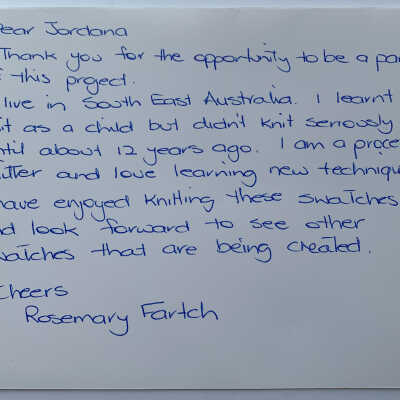 ear Jordana
Thank you for the opportunity to be a par
f this project.
live in South East Australia. I learnt
it as a child but didn't knit seriously
ntil about 12 years ago. I am a proce
itter and love learning new techniqu
have enjoyed knitting these swatches
nd look forward to see other
watches that are being created.
Cheers
Rosemary Fartch